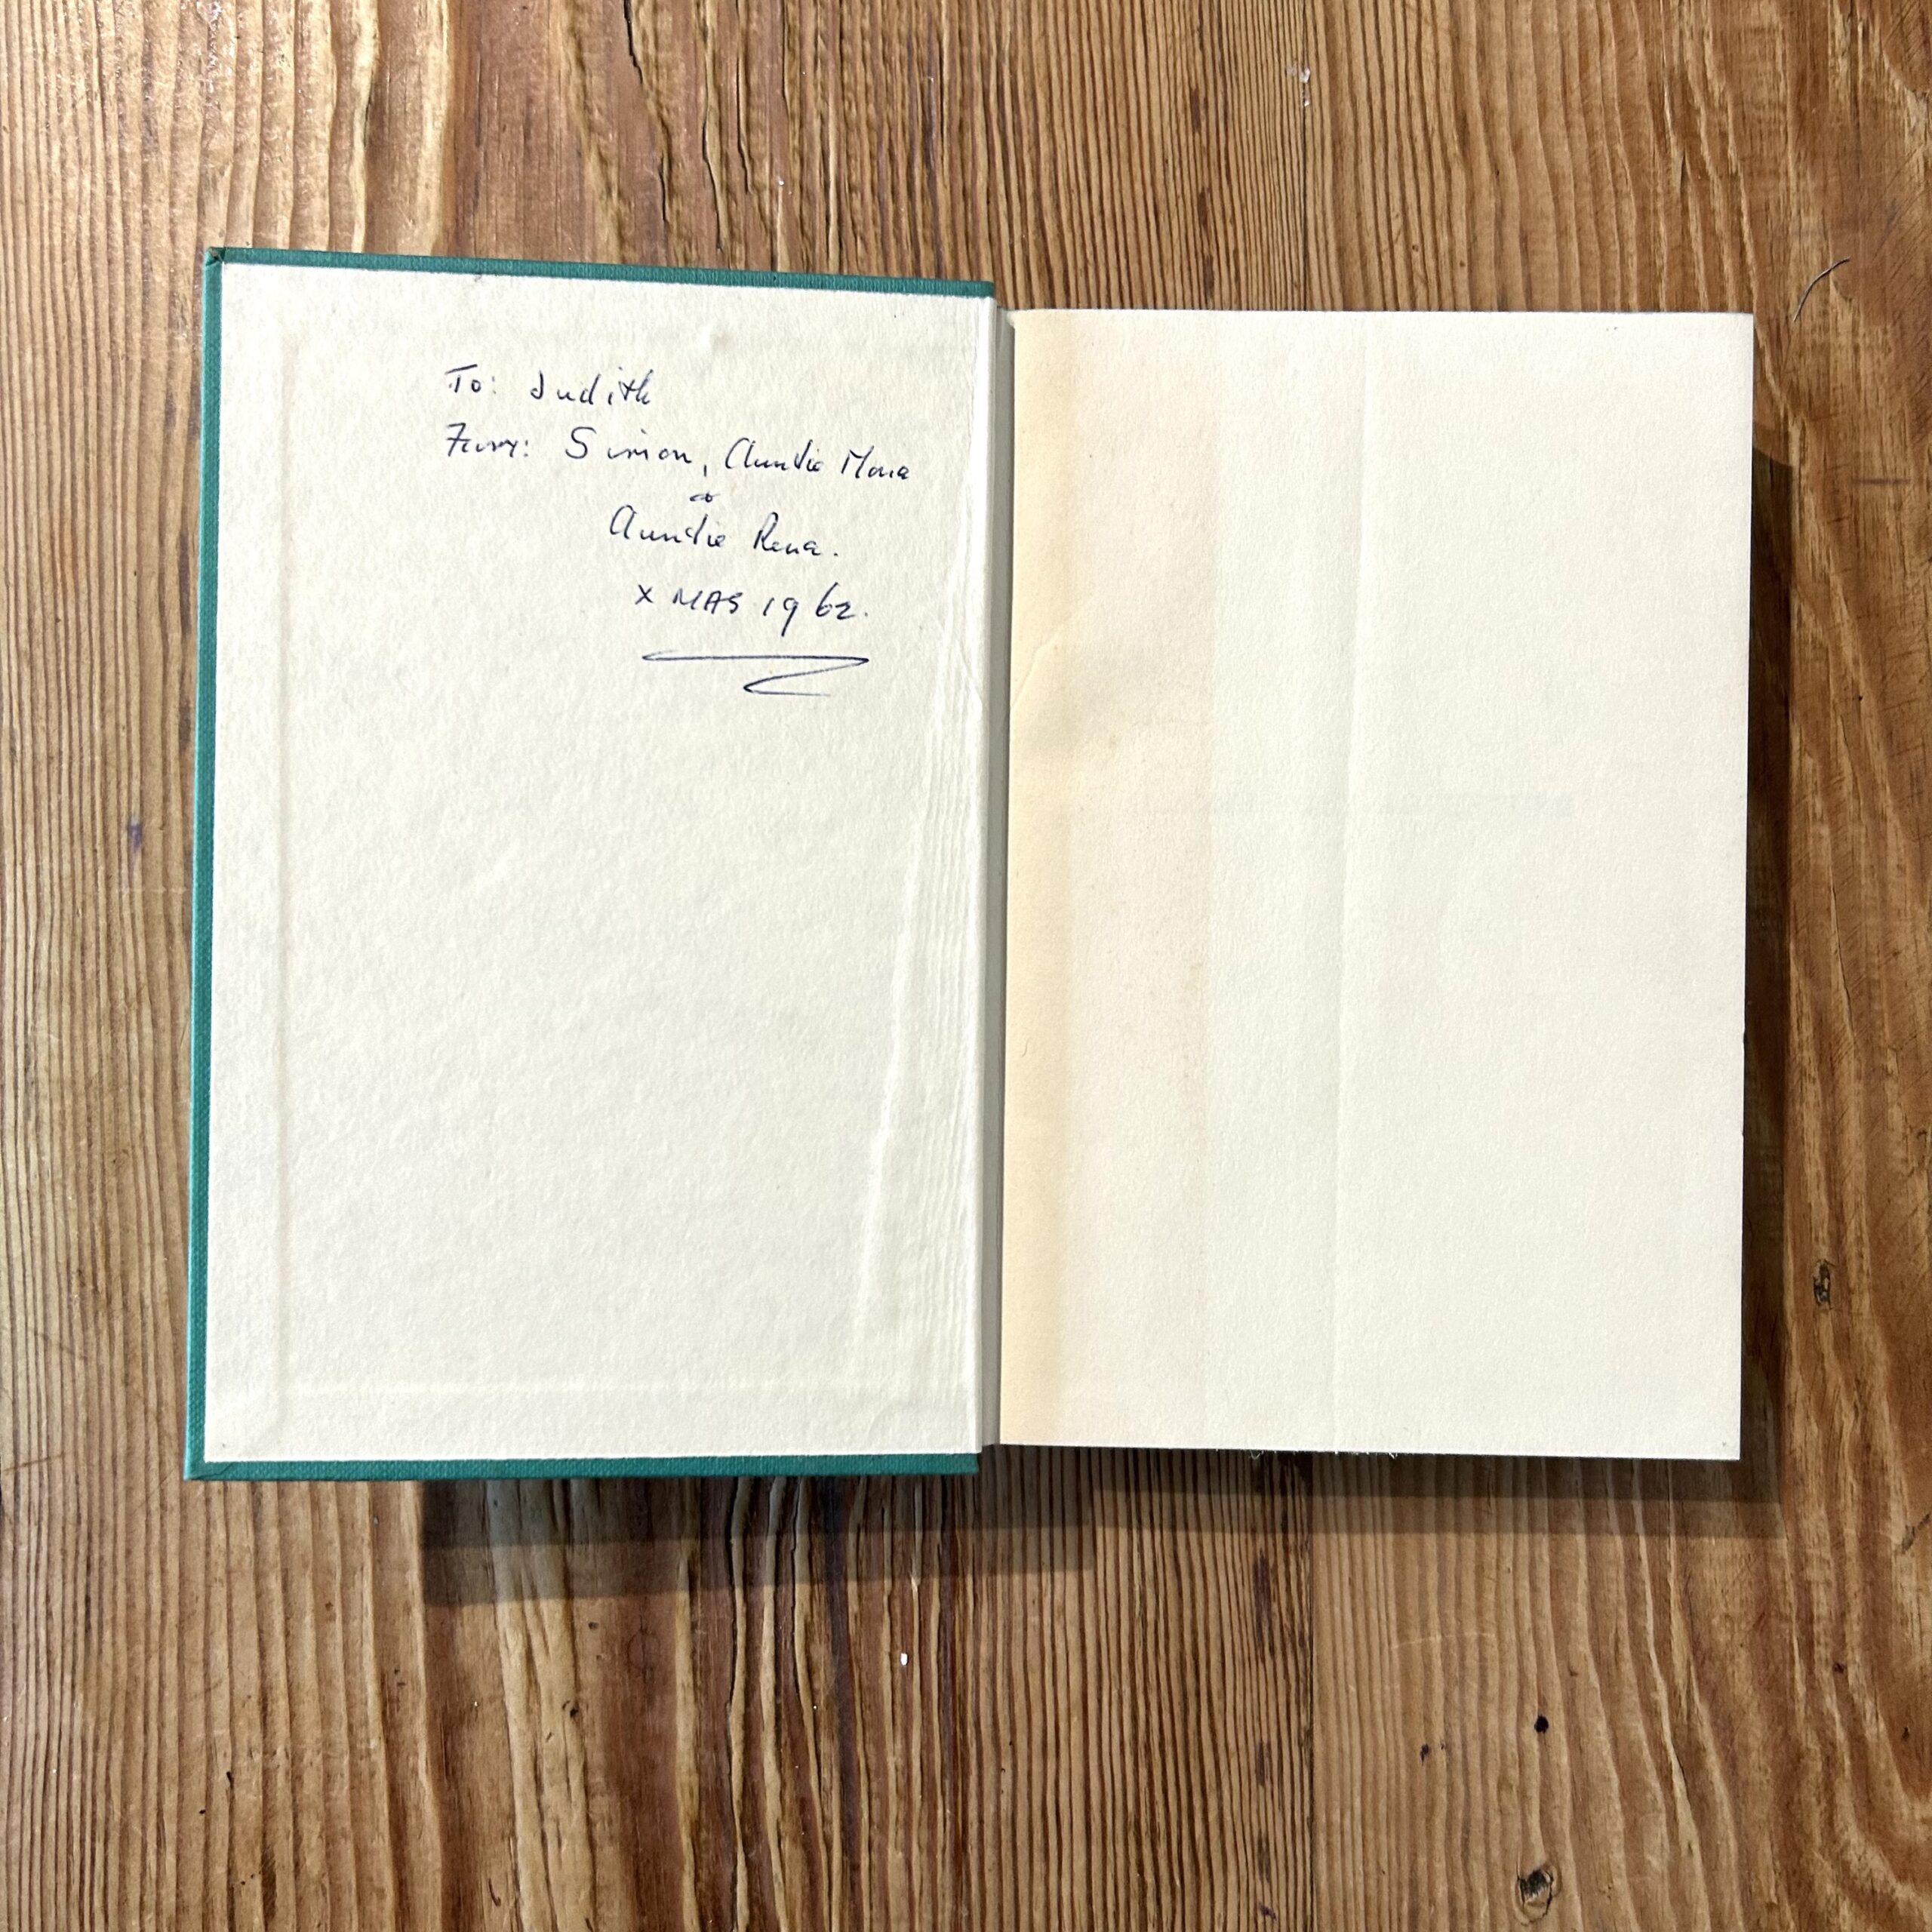 To: Judith
From: Simon, Auntie Mona
&
Auntie Rena.
XMAS 1962.